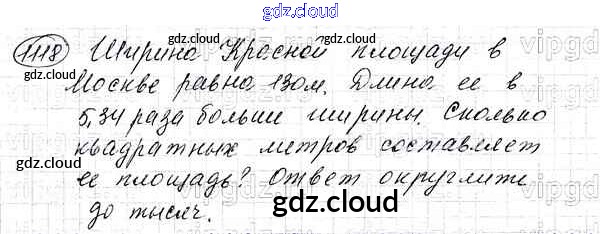 gdz.cloud
1118 Ширина Красной площади в
Москве равна 130м. Длина ее в
5,34 раза больше ширины. Сколько
квадратных метров составляет
ее площадь? Ответ округлите
до тысяч.
gdz.cloud
gdz.cloud
gdz.cloud
gdz.cloud
gdz.cloud
gdz.cloud
vipgdz